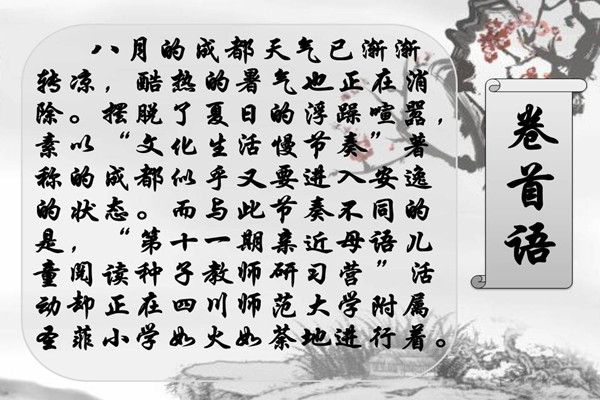 八月的成都天气已渐渐
转凉，酷热的暑气也正在消
除。摆脱了夏日的浮躁喧嚣，
素以“文化生活慢节奏”著
称的成都似乎又要进入安逸
的状态。而与此节奏不同的
是，“第十一期亲近母语儿
童阅读种子教师研习营”活
动却正在四川师范大学附属
圣菲小学如火如荼地进行着。
卷首语